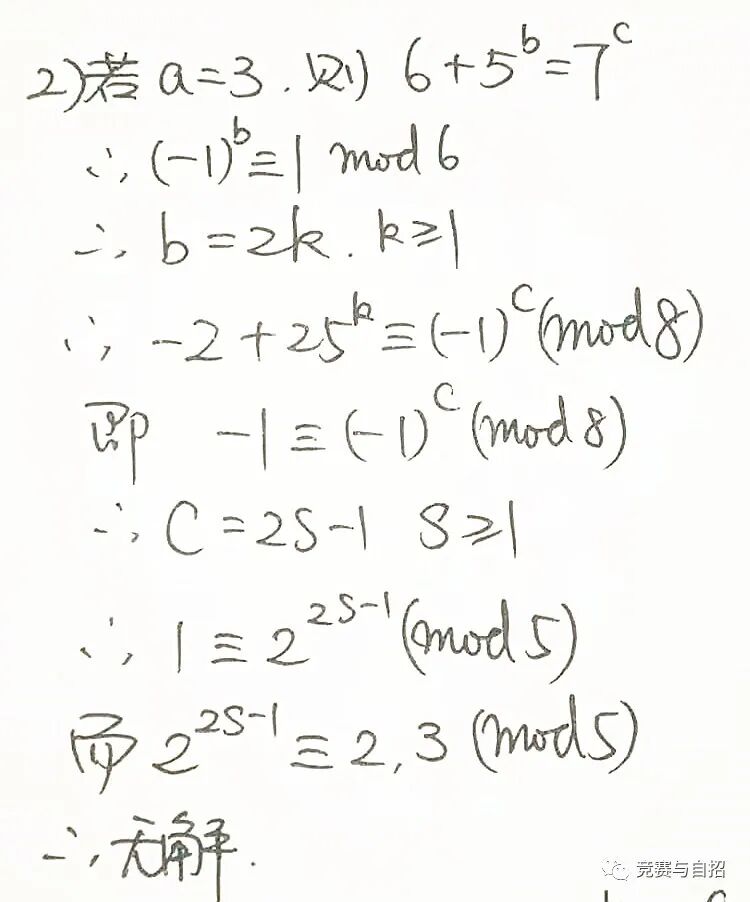 2)若 a=3.则 6+5^b=7^c
∴ (-1)^b≡1 mod 6
∴ b=2k. k≥1
∴ -2+25^k≡(-1)^c(mod 8)
即 -1≡(-1)^c(mod 8)
∴ C=2S-1 S≥1
∴ 1≡2^{2S-1}(mod 5)
而 2^{2S-1}≡2,3 (mod 5)
∴ 无解.
竞赛与自招